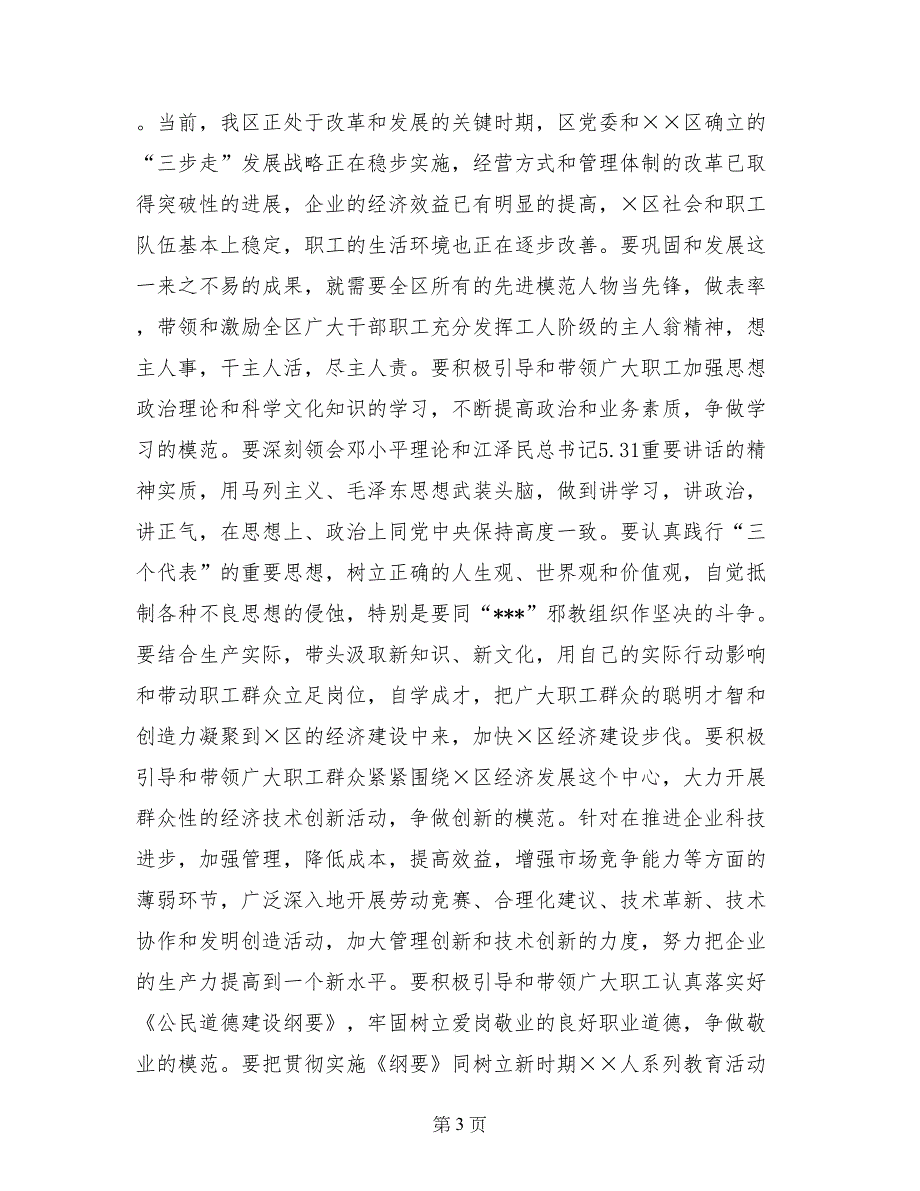 。当前，我区正处于改革和发展的关键时期，区党委和××区确立的
“三步走”发展战略正在稳步实施，经营方式和管理体制的改革已取
得突破性的进展，企业的经济效益已有明显的提高，×区社会和职工
队伍基本上稳定，职工的生活环境也正在逐步改善。要巩固和发展这
一来之不易的成果，就需要全区所有的先进模范人物当先锋，做表率
，带领和激励全区广大干部职工充分发挥工人阶级的主人翁精神，想
主人事，干主人活，尽主人责。要积极引导和带领广大职工加强思想
政治理论和科学文化知识的学习，不断提高政治和业务素质，争做学
习的模范。要深刻领会邓小平理论和江泽民总书记5.31重要讲话的精
神实质，用马列主义、毛泽东思想武装头脑，做到讲学习，讲政治，
讲正气，在思想上、政治上同党中央保持高度一致。要认真践行“三
个代表”的重要思想，树立正确的人生观、世界观和价值观，自觉抵
制各种不良思想的侵蚀，特别是要同“***”邪教组织作坚决的斗争。
要结合生产实际，带头汲取新知识、新文化，用自己的实际行动影响
和带动职工群众立足岗位，自学成才，把广大职工群众的聪明才智和
创造力凝聚到×区的经济建设中来，加快×区经济建设步伐。要积极
引导和带领广大职工群众紧紧围绕×区经济发展这个中心，大力开展
群众性的经济技术创新活动，争做创新的模范。针对在推进企业科技
进步，加强管理，降低成本，提高效益，增强市场竞争能力等方面的
薄弱环节，广泛深入地开展劳动竞赛、合理化建议、技术革新、技术
协作和发明创造活动，加大管理创新和技术创新的力度，努力把企业
的生产力提高到一个新水平。要积极引导和带领广大职工认真落实好
《公民道德建设纲要》，牢固树立爱岗敬业的良好职业道德，争做敬
业的模范。要把贯彻实施《纲要》同树立新时期××人系列教育活动
第 3 页